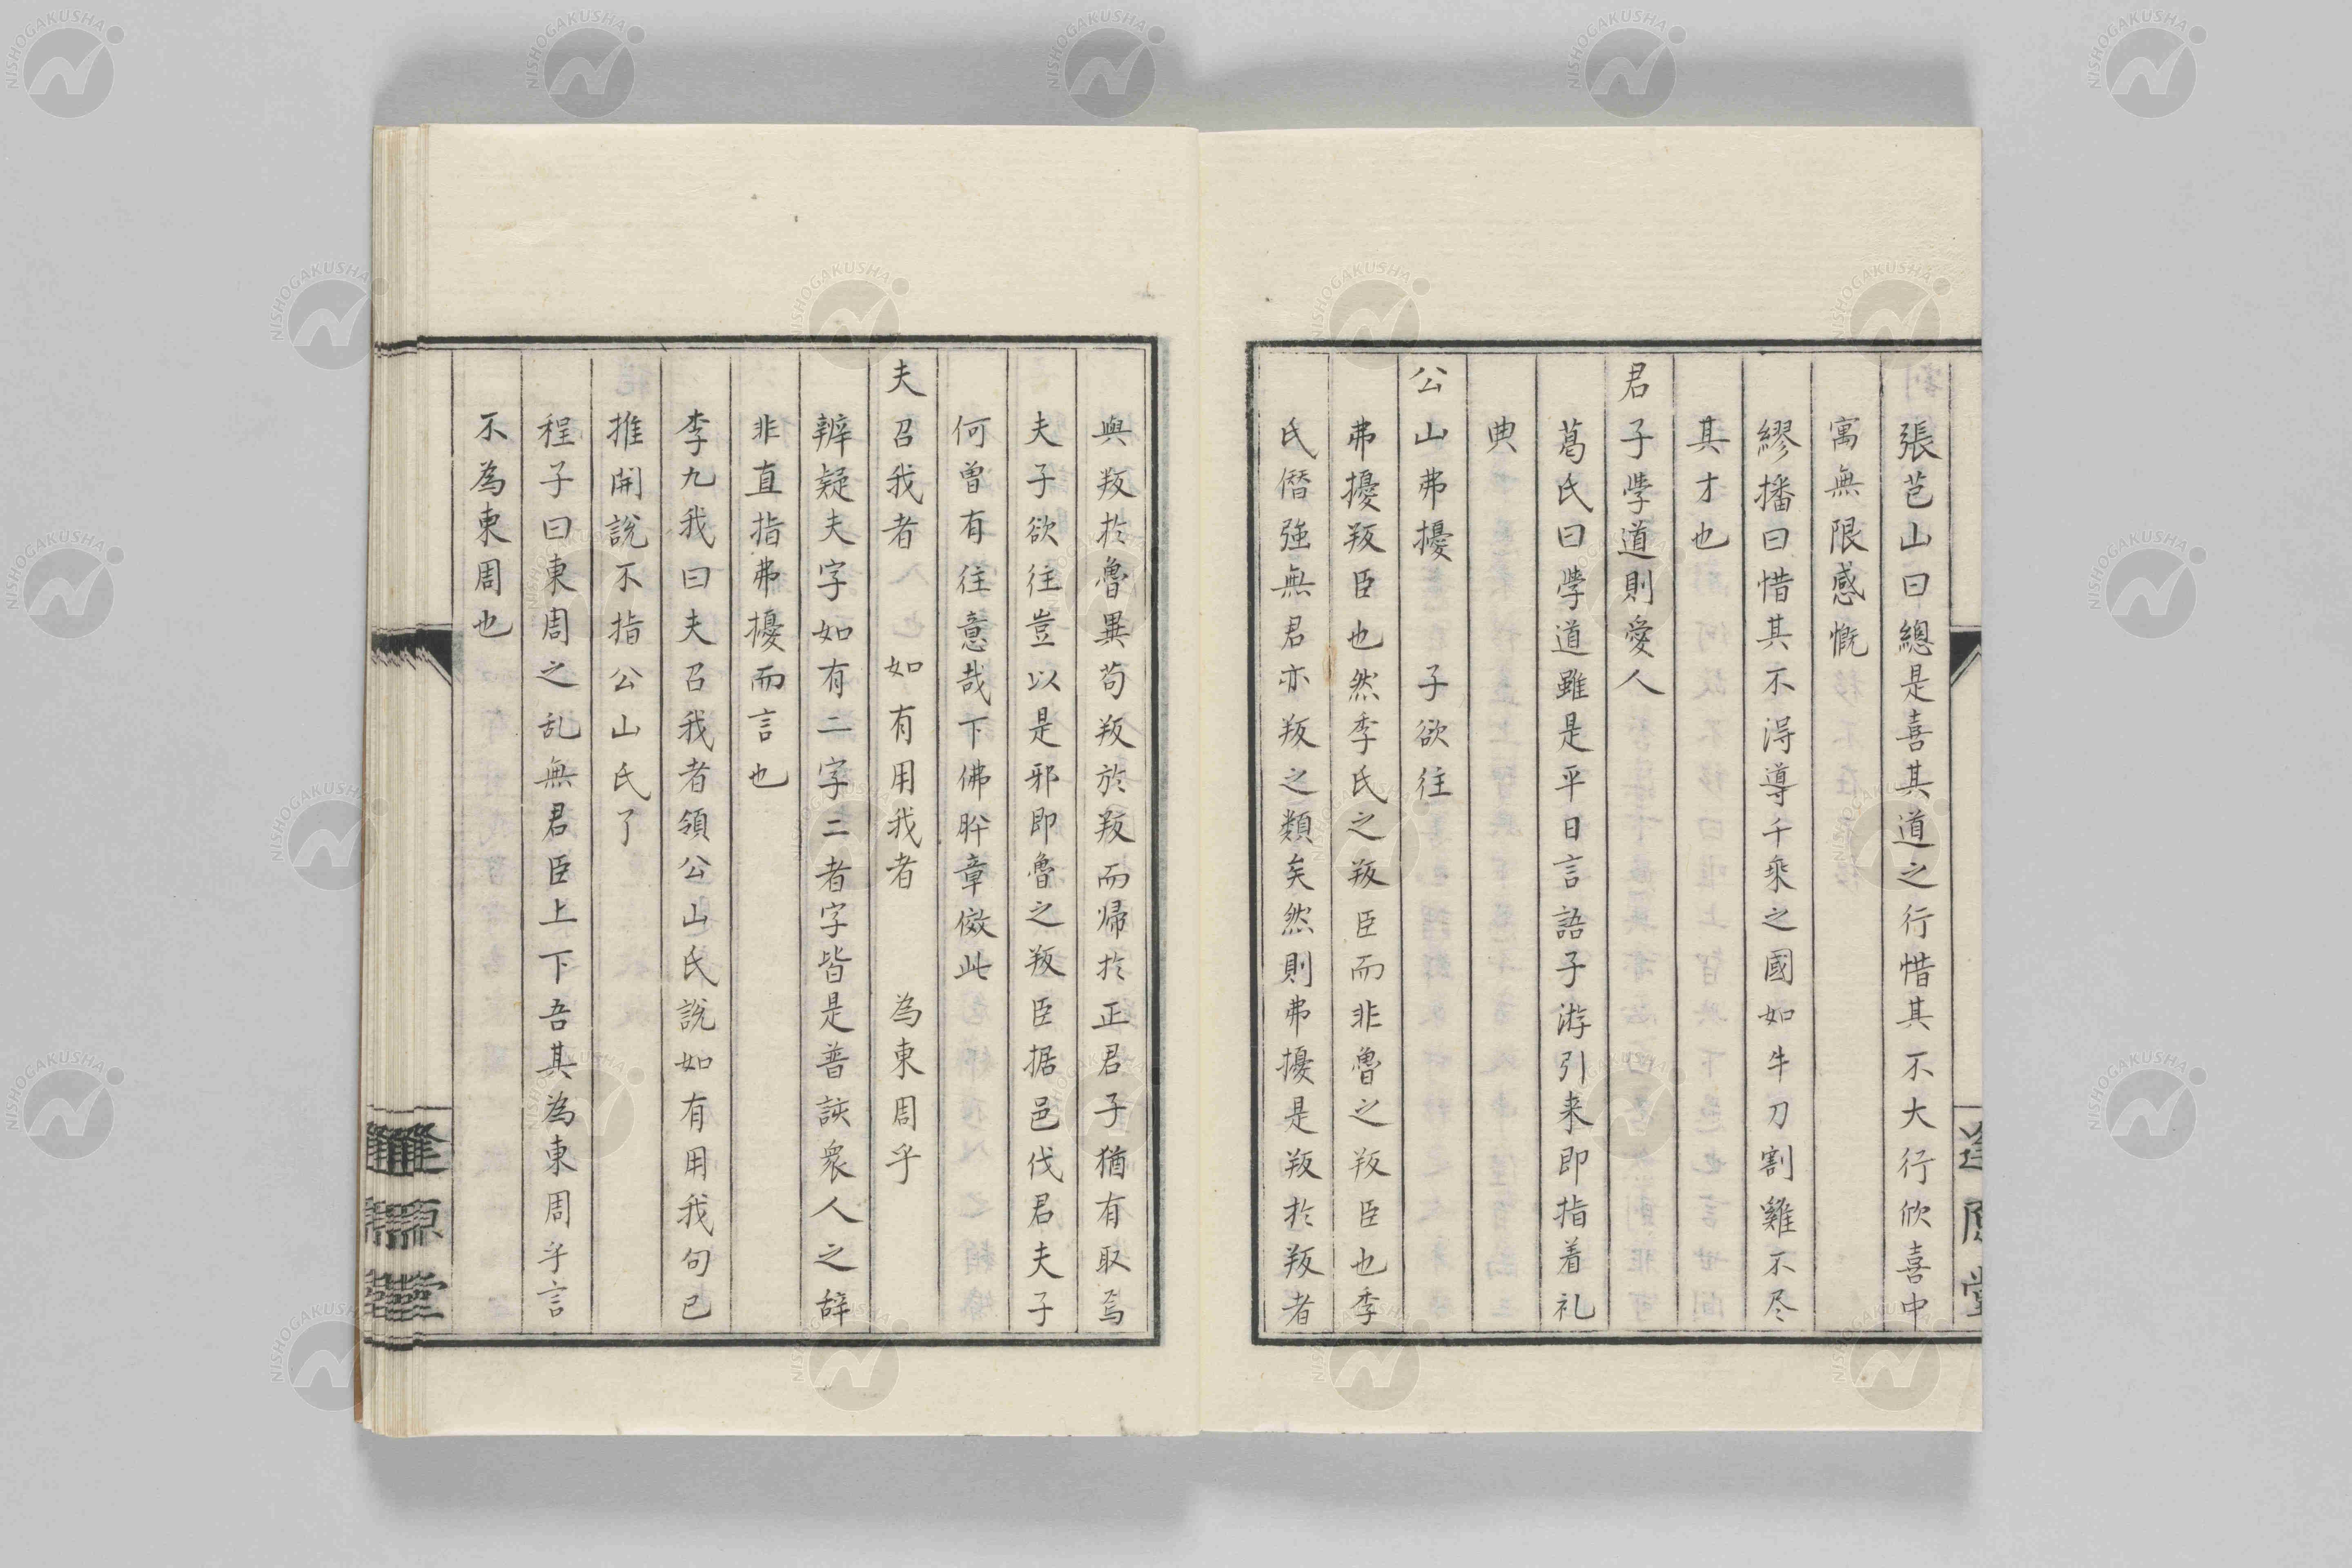 張芑山曰總是喜其道之行惜其不大行欣喜中
寓無限感慨
繆播曰惜其不得導千乘之國如牛刀割雞不尽
其才也
君子學道則愛人
葛氏曰學道雖是平日言語子游引来即指着礼
典
公山弗擾　　子欲往
弗擾叛臣也然季氏之叛臣而非魯之叛臣也季
氏僭強無君亦叛之類矣然則弗擾是叛於叛者
與叛於魯異苟叛於叛而帰於正君子猶有取焉
夫子欲往豈以是邪即魯之叛臣据邑伐君夫子
何曽有往意哉下佛肸章倣此
夫召我者　　如有用我者　　為東周乎
辨疑夫字如有二字二者字皆是普該衆人之辞
非直指弗擾而言也
李九我曰夫召我者領公山氏說如有用我句已
推開說不指公山氏了
程子曰東周之乱無君臣上下吾其為東周乎言
不為東周也
NISHOGAKUSHA